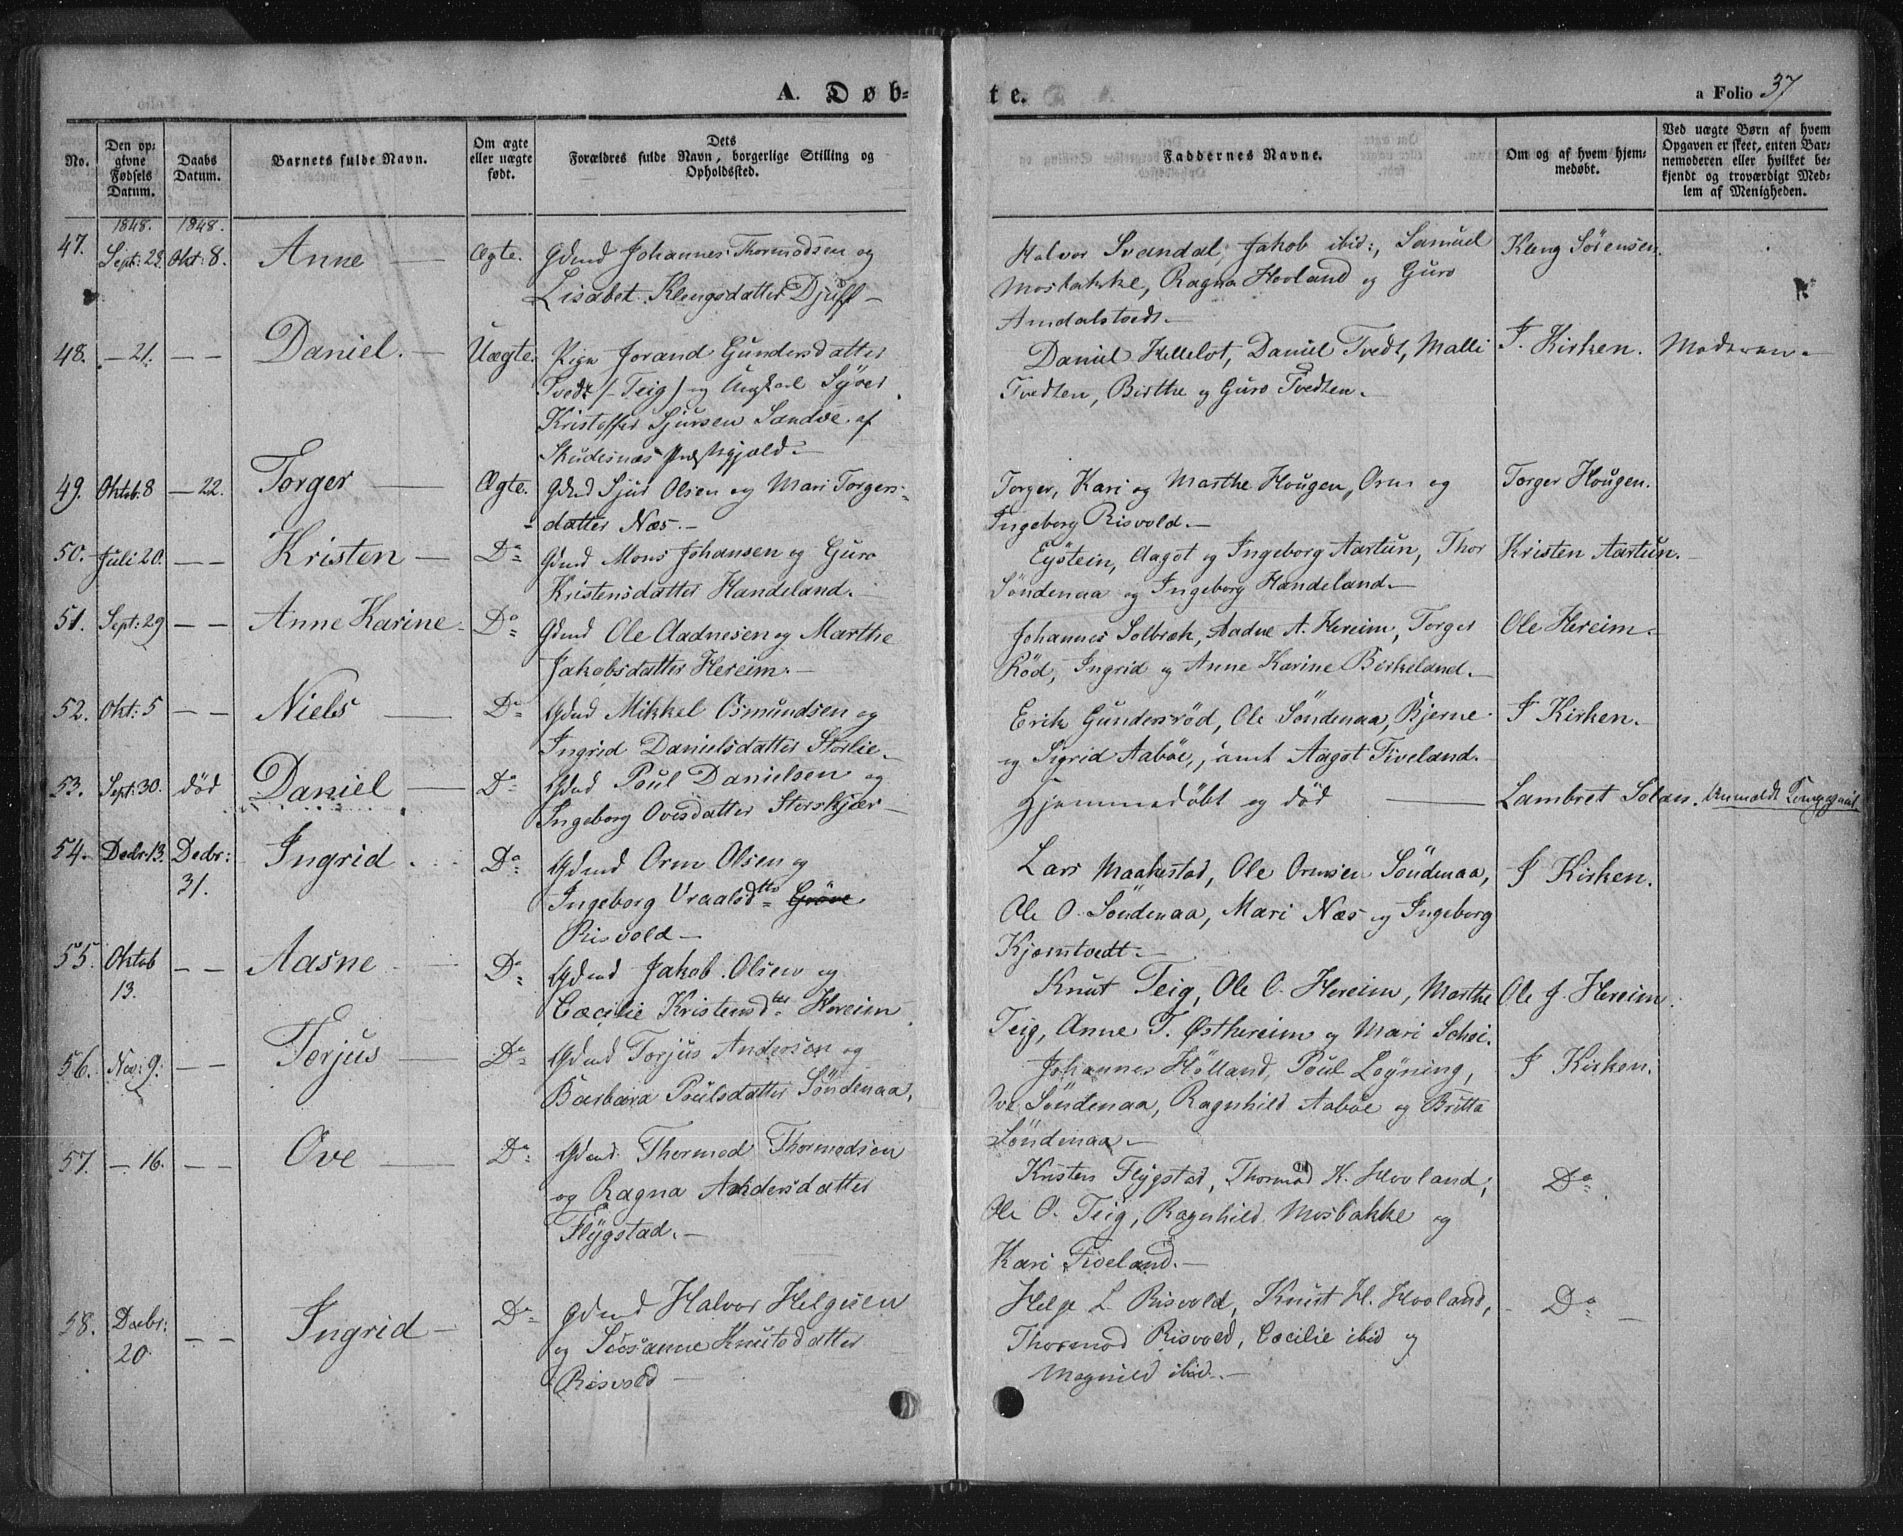 A. Døb-
te.
a Folio 37
No.
Den op-
givne
Fødsels
Datum.
Daabs
Datum.
Barnets fulde Navn.
Om ægte
eller uægte
født.
Dets
Forældres fulde Navn, borgerlige Stilling og
Opholdssted.
Faddernes Navne.
Om og af hvem hjem-
medøbt.
Ved uægte Børn af hvem
Opgaven er skeet, enten Bar-
nemoderen eller hvilket be-
kjendt og troværdigt Med-
lem af Menigheden.
1848. 1848.
47. Sept: 29. Okt: 8. Anne — Ægte. Gdmd Johannes Thormodsen og
Lisabet Klengsdatter Djuff —
Halvor Svandal, Jakob ibid:, Samuel
Mosbakke, Ragna Hovland og Guro
Amdalstvedt. —
Kleng Sörensen.
48. — 21. — — Daniel. — Uægte. Pige Jorand Gundersdatter
Tvedt /– Teig/ og Ungkarl Syver
Kristoffer Sjursen Sandve af
Skudesnæs Præstegjæld. —
Daniel Hellelot, Daniel Tvedt, Malli
Tvedten, Birthe og Guro Tvedten. —
I Kirken.
Moderen —
49. Oktob: 8 — 22. Torger — Ægte. Gdmd Sjur Olsen og Mari Torgers-
datter Næs. —
Torger, Kari og Marthe Hougen, Orm og
Ingeborg Risvold. —
Torger Hougen.
50. Juli 20. — — Kristen — Do Gdmd Mons Johansen og Guro
Kristensdatter Handeland. —
Eystein, Aagot og Ingeborg Aartun, Thor
Söndenaa og Ingeborg Handeland. —
Kristen Aartun. —
51. Sept: 29 — — Anne Karine — Do Gdmd Ole Aadnesen og Marthe
Jakobsdatter Hereim. —
Johannes Solbræk, Aadne A. Hereim, Torger
Röd, Ingrid og Anne Karine Birkeland. —
Ole Hereim —
52. Okt: 5 — — Niels — Do Gdmd Mikkel Osmundsen og
Ingrid Danielsdatter Storlie —
Erik Gundersröd, Ole Söndenaa, Bjerne
og Sigrid Aaböe, samt Aagot Tiveland.
I Kirken.
53. Sept: 30. död Daniel — Do Gdmd Poul Danielsen og
Ingeborg Ovesdatter Storskjær —
Hjemmedöbt og död —
Lambret Soldes. Anmeldt
54. Decbr 13. Decbr: 31. Ingrid. Do Gdmd Orm Olsen og
Ingeborg Vraalsdttr Gröve.
Risvold —
Lars Maakestad, Ole Ormsen Söndenaa,
Ole O. Söndenaa, Mari Næs og Ingeborg
Kjærntvedt —
I Kirken.
55. Oktob 13. — — Aasne Do Gdmd Jakob Olsen og
Cæcilie Kristensdter Hereim
Knut Teig, Ole O. Hereim, Marthe
Teig, Anne T. Østhereim og Mari Schei.
Ole J. Hereim.
56. Nov: 9: — — Torjus — Do Gdmd Torjus Andersen og
Barbara Poulsdatter Söndenaa,
Johannes Hölland, Poul Löyning,
Ove Söndenaa, Ragnhild Aaböe og Britta
Söndenaa —
I Kirken.
57. — 16. — — Ove — Do Gdmd. Thormod Thormodsen
og Ragna Andersdatter
Flygstad. —
Kristen Flygstad, Thormod K. Hovland,
Ole O. Teig, Ragnhild Mosbakke og
Kari Tiveland. —
Do
58. Decbr: 20. — — Ingrid — Do Gdmd Halvor Helgesen
og Susanne Knutsdatter
Risvold —
Helge L. Risvold, Knut H. Hovland,
Thormod Risvold, Cæcilie ibid og
Magnild ibid. —
Do —